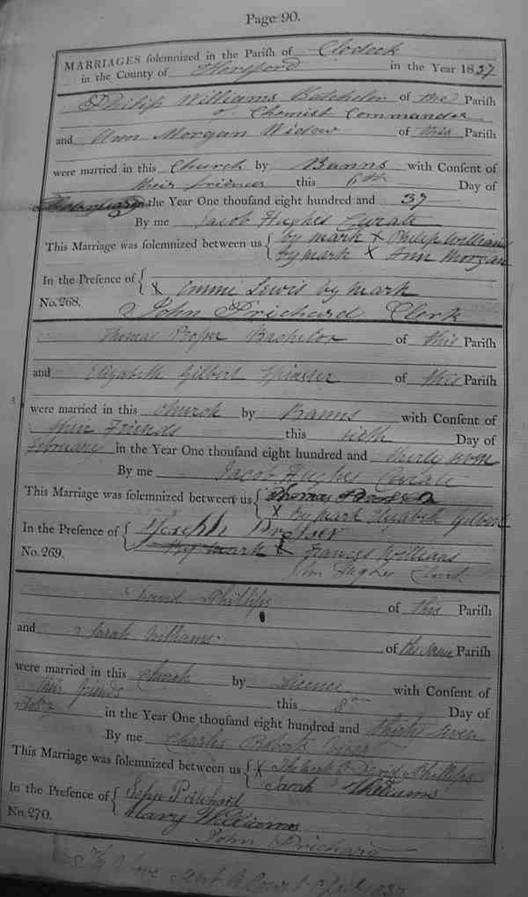 Page 90.
MARRIAGES solemnized in the Parish of Clodock
in the County of Hereford in the Year 1837
Philip Williams Batchelor of the Parish
of Commander
and Ann Morgan Widow of this Parish
were married in this Church by Banns with Consent of
their friends this 6th Day of
in the Year One thousand eight hundred and 37
By me Jacob Hughes Curate
This Marriage was solemnized between us by mark X Philip Williams
by mark X Ann Morgan
In the Presence of X Lewis by mark
No. 268. John Prichard Clerk
Thomas Bachelor of this Parish
and Elizabeth Gilbert Spinster of this Parish
were married in this Church by Banns with Consent of
their Friends this Day of
February in the Year One thousand eight hundred and thirty
By me Jacob Hughes Curate
This Marriage was solemnized between us Thomas
X By mark Elizabeth Gilbert
In the Presence of Joseph
By mark X Frances Williams
No. 269. Hughes
David Phillips of this Parish
and Sarah Williams of the same Parish
were married in this Church by Licence with Consent of
their friends this 8th Day of
in the Year One thousand eight hundred and thirty seven
By me Charles
This Marriage was solemnized between us X David Phillips
Sarah Williams
In the Presence of Prichard
Mary Williams
No. 270. John Prichard